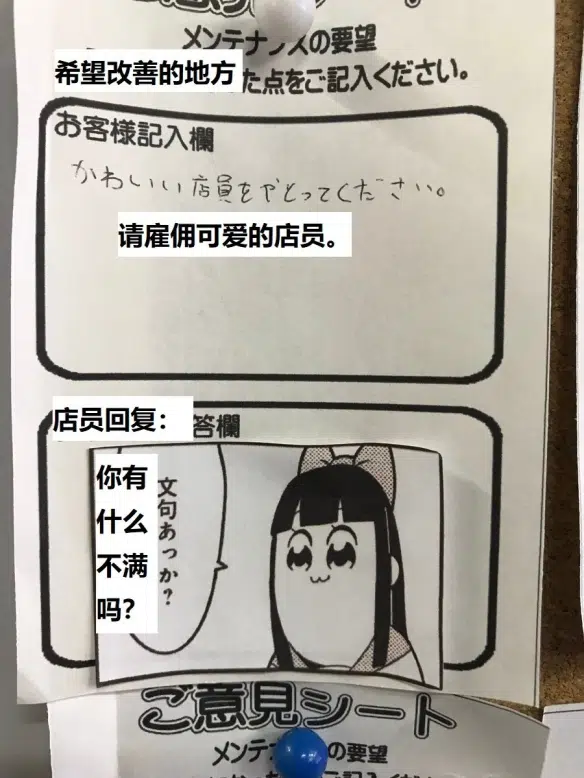 メンテナンスの要望
希望改善的地方
た点をご記入ください。
お客様記入欄
かわいい店員をやとってください。
请雇佣可爱的店员。
店员回复：
答欄
你有
什么
不满
吗？
文句あっか？
ご意見シート
メンテ の要望